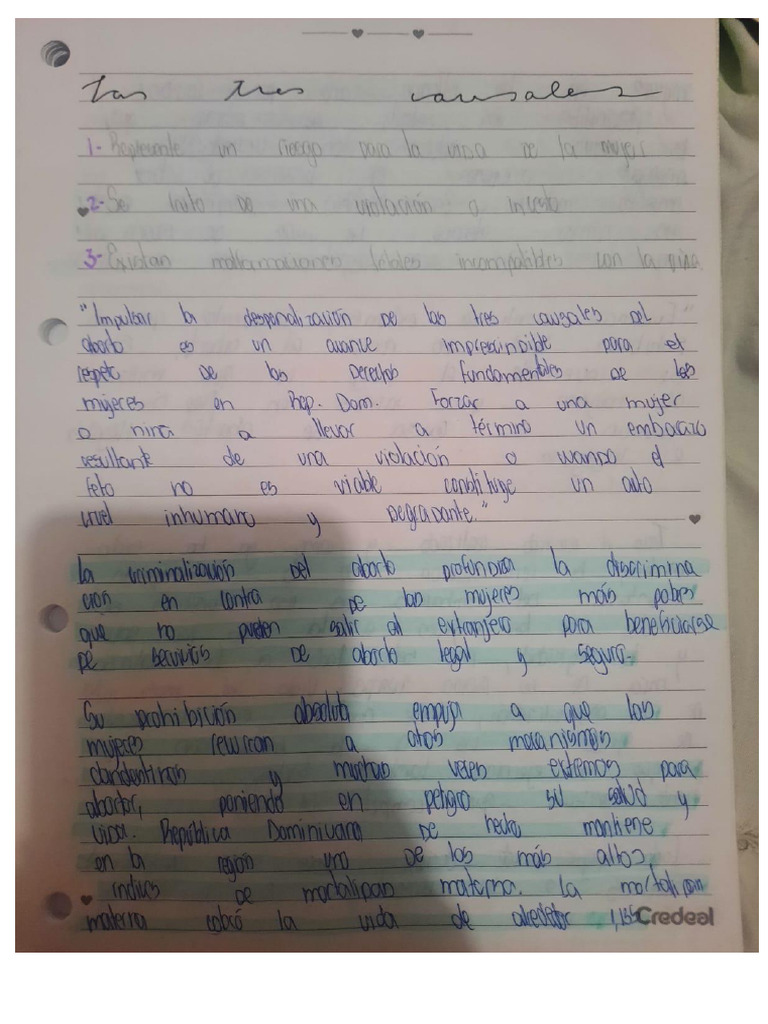 Las tres causales
1- Represente un riesgo para la vida de la mujer
2- Se trato de una violación o incesto
3- Existan malformaciones fetales incompatibles con la vida.
"Impulsar la despenalización de las tres causales del
aborto es un avance imprescindible para el
respeto de los Derechos fundamentales de las
mujeres en Rep. Dom. Forzar a una mujer
o niña a llevar a término un embarazo
resultante de una violación o cuando el
feto no es viable constituye un acto
cruel inhumano y Degradante."
la criminalización del aborto profundiza la discrimina
ción en contra de las mujeres más pobres
que no pueden salir al extranjero para beneficiarse
de servicios de aborto legal y segura.
Su prohibición absoluta empuja a que las
mujeres recurran a otros mecanismos
clandentinos y muchas veces extremos para
abortar, poniendo en peligro su salud y
vida. República Dominicana de hecho mantiene
en la región uno de los más altos
indices de mortalidad materna. la mortalidad
materna cobró la vida de alrededor 1,155
Credeal